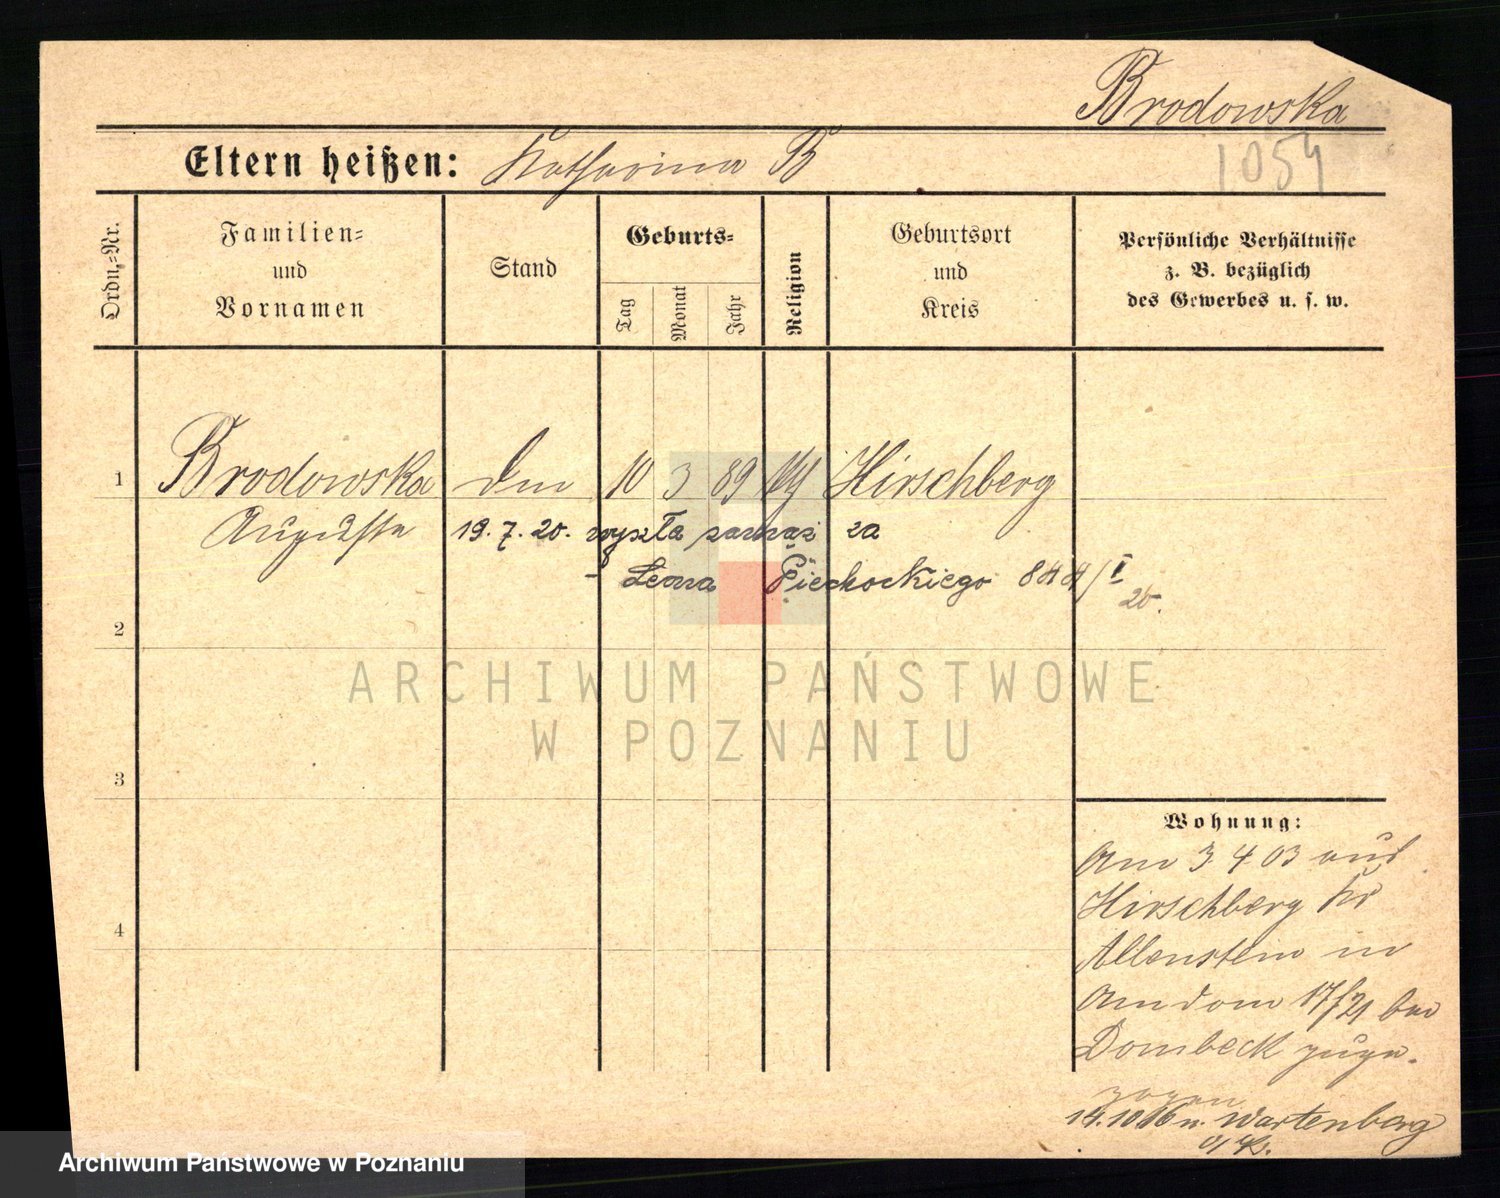 Brodowska
1054
Eltern heißen: Katharina B
Ordn.-Nr.
Familien-
und
Vornamen
Stand
Geburts-
Tag
Monat
Jahr
Religion
Geburtsort
und
Kreis
Persönliche Verhältnisse
z. B. bezüglich
des Gewerbes u. s. w.
1 Brodowska 10 3 89 Hirschberg
Auguste 19. 7. 20. wyszła zamąż za
Leona Piechockiego 844/I
20.
2
3
4
Wohnung:
Am 3 4 03 aus
Hirschberg Kr
Allenstein in
Amdom 17/21 bei
Dombeck zuge-
zogen
14.10 16 n. Wartenberg
ARCHIWUM PAŃSTWOWE
W POZNANIU
Archiwum Państwowe w Poznaniu